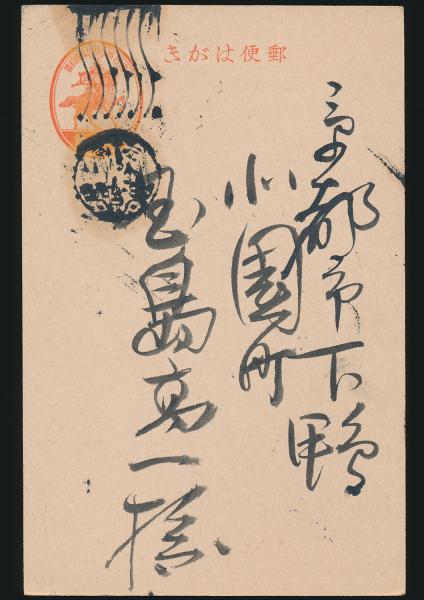 郵便はがき
京都市下鴨
北園町
玉島高一様